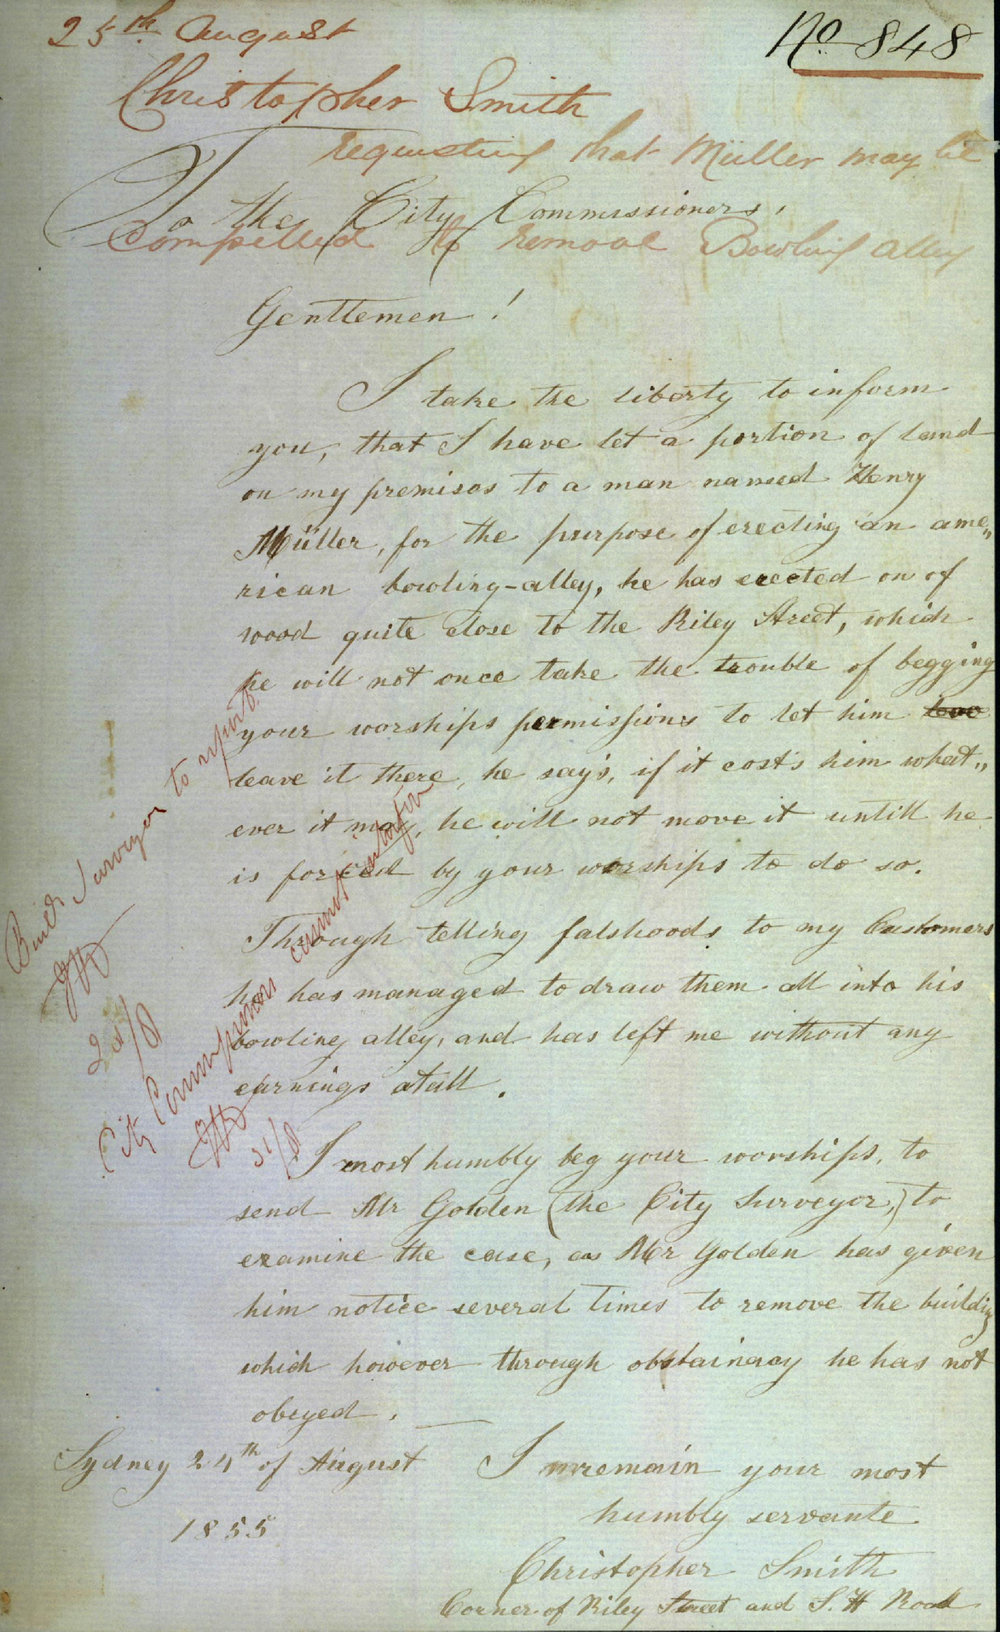 25th August
No 848
Christopher Smith
requesting that Müller may be
To the City Commissioners,
compelled to remove Bowling alley
Gentlemen!
I take the liberty to inform
you, that I have let a portion of land
on my premises to a man named Henry
Müller, for the purpose of erecting an ame„
rican bowling-alley, he has erected on of
wood quite close to the Riley Street, which
he will not once take the trouble of begging
your worships permissions to let him
leave it there, he say's, if it cost's him what„
ever it may, he will not move it untill he
is forced by your worships to do so.
Through telling falshoods to my Customers
he has managed to draw them all into his
bowling alley, and has left me without any
earnings atall.
I most humbly beg your worships, to
send Mr Golden (the City Surveyor,) to
examine the case, as Mr Golden has given
him notice several times to remove the building
which however through obstainacy he has not
obeyed.
Sydney 24th of August
1855
I remain your most
humbly servante
Christopher Smith
Corner of Riley Street and S. H Road
Surveyor to report
28/8
City Commissioners cannot interfere
31/8